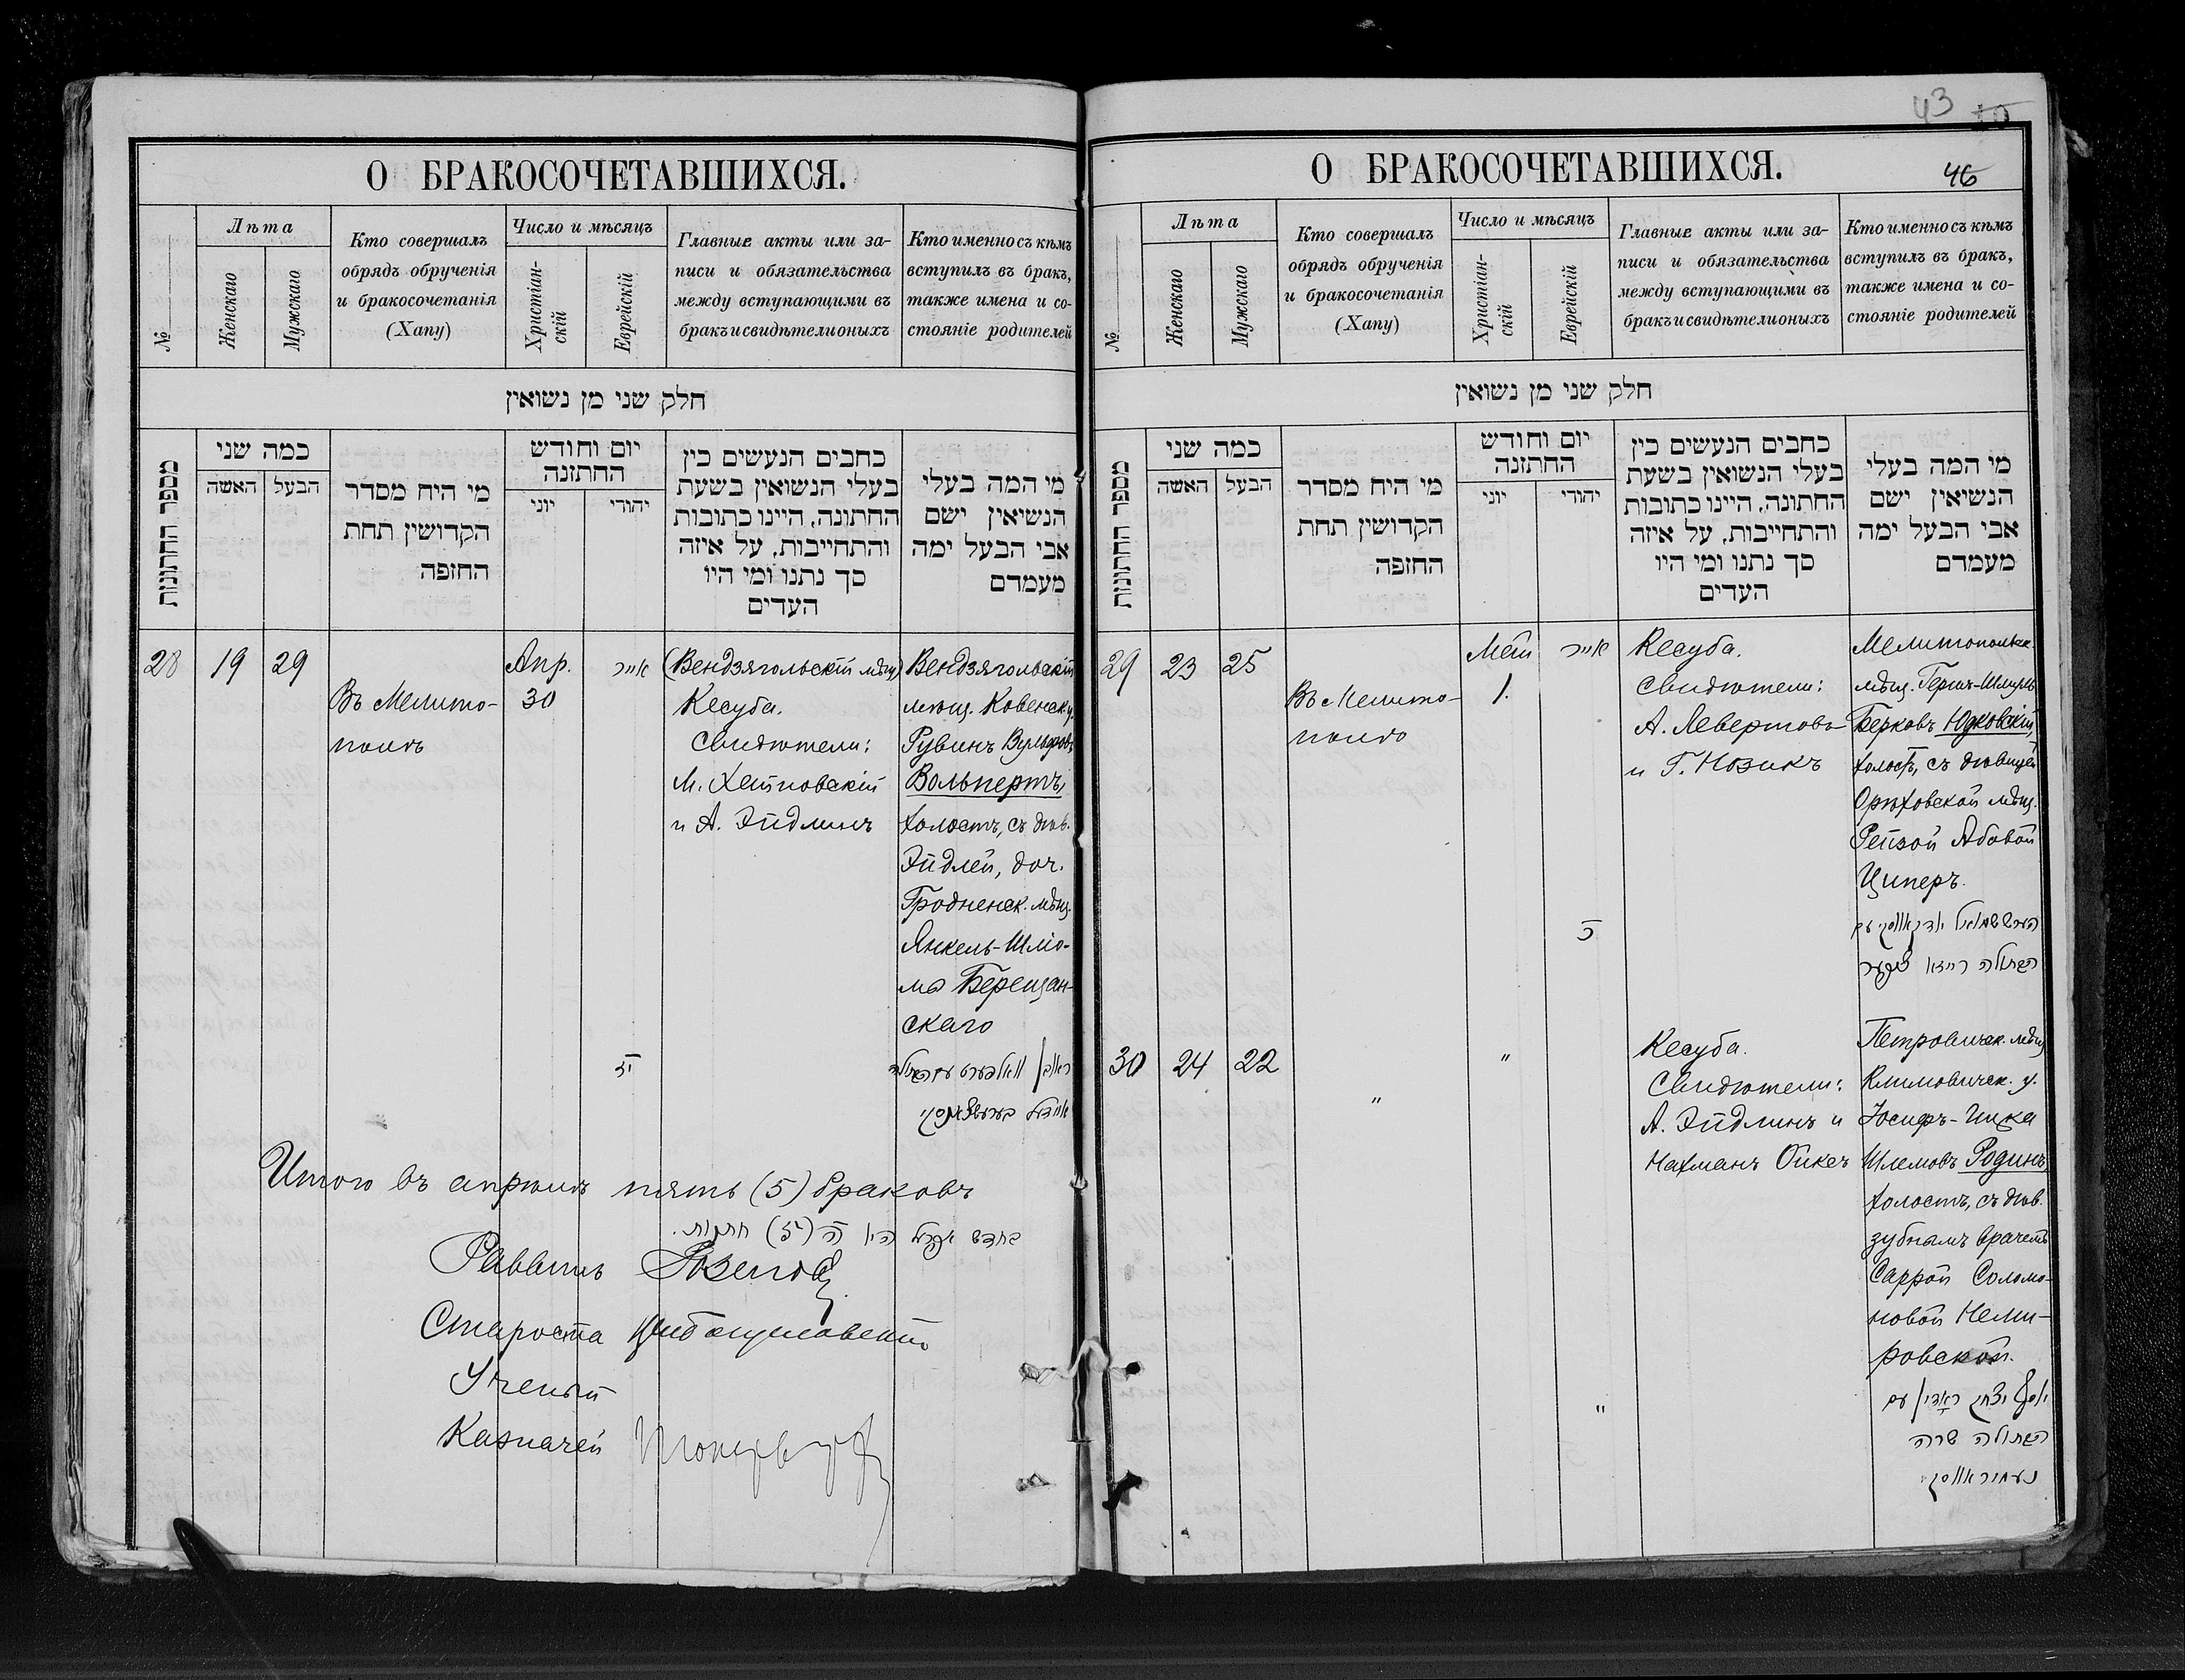 О БРАКОСОЧЕТАВШИХСЯ.
№
Лѣта
Женскаго
Мужскаго
Кто совершалъ
обрядъ обрученія
и бракосочетанія
(Хапу)
Число и мѣсяцъ
Христіан-
скій
Еврейскій
Главные акты или за-
писи и обязательства
между вступающими въ
бракъ и свидѣтели оныхъ
Кто именно съ кѣмъ
вступилъ въ бракъ,
также имена и со-
стояніе родителей
חלק שני מן נשואין
מספר החתונות
כמה שני
האשה
הבעל
מי היח מסדר
הקדושין תחת
החופה
יום וחודש
החתונה
יוני
יהודי
כתבים הנעשים בין
בעלי הנשואין בשעת
החתונה, היינו כתובות
והתחייבות, על איזה
סך נתנו ומי היו
העדים
מי המה בעלי
הנשיאין ישם
אבי הבעל ימה
מעמדם
28
19
29
Въ Мелито-
полѣ
Апр.
30
אייר
יז
(Вендзягольскій мѣщ.)
Кесуба.
Свидѣтели:
М. Хайновскій
и А. Эйдлинъ
Вендзягольскій
мѣщ. Ковенск. у.
Рувинъ Вульфовъ
Вольпертъ,
холостъ, съ дѣв.
Эйдлей, доч.
Гродненск. мѣщ.
Янкель-Шлё-
ма Берещан-
скаго
ראובן וואלפערט עם הבתולה
איידל
Итого въ апрѣлѣ пять (5) браковъ
בחדש אפריל היו ה (5) חתונות.
Раввинъ
Староста
Ученый
Казначей
43
10
46
О БРАКОСОЧЕТАВШИХСЯ.
№
Лѣта
Женскаго
Мужскаго
Кто совершалъ
обрядъ обрученія
и бракосочетанія
(Хапу)
Число и мѣсяцъ
Христіан-
скій
Еврейскій
Главные акты или за-
писи и обязательства
между вступающими въ
бракъ и свидѣтели оныхъ
Кто именно съ кѣмъ
вступилъ въ бракъ,
также имена и со-
стояніе родителей
חלק שני מן נשואין
מספר החתונות
כמה שני
האשה
הבעל
מי היח מסדר
הקדושין תחת
החופה
יום וחודש
החתונה
יוני
יהודי
כתבים הנעשים בין
בעלי הנשואין בשעת
החתונה, היינו כתובות
והתחייבות, על איזה
סך נתנו ומי היו
העדים
מי המה בעלי
הנשיאין ישם
אבי הבעל ימה
מעמדם
29
23
25
Въ Мелито-
полѣ
Май
1.
אייר
Кесуба.
Свидѣтели:
А. Левертовъ
и Г. Нозикъ
Мелитопольск.
мѣщ. Гершъ-Шмуль
Берковъ Юдковскій,
холостъ, съ дѣвицей
Орѣховской мѣщ.
Рейзой Абовой
Циперъ.
הערש שמואל יודקאווסקי עם
הבתולה רייזא ציפער
30
24
22
"
"
"
Кесуба.
Свидѣтели:
А. Эйдлинъ и
Нахманъ Ойкер
Петровическ. мѣщ.
Климовическ. у.
Іосифъ-Ицка
Шлемовъ Родинъ,
холостъ, съ дѣв.
зубнымъ врачемъ
Саррой Соломо-
новой Неми-
ровской.
יוסף יצחק ראָדין עם
הבתולה שרה
נעמיראווסקי